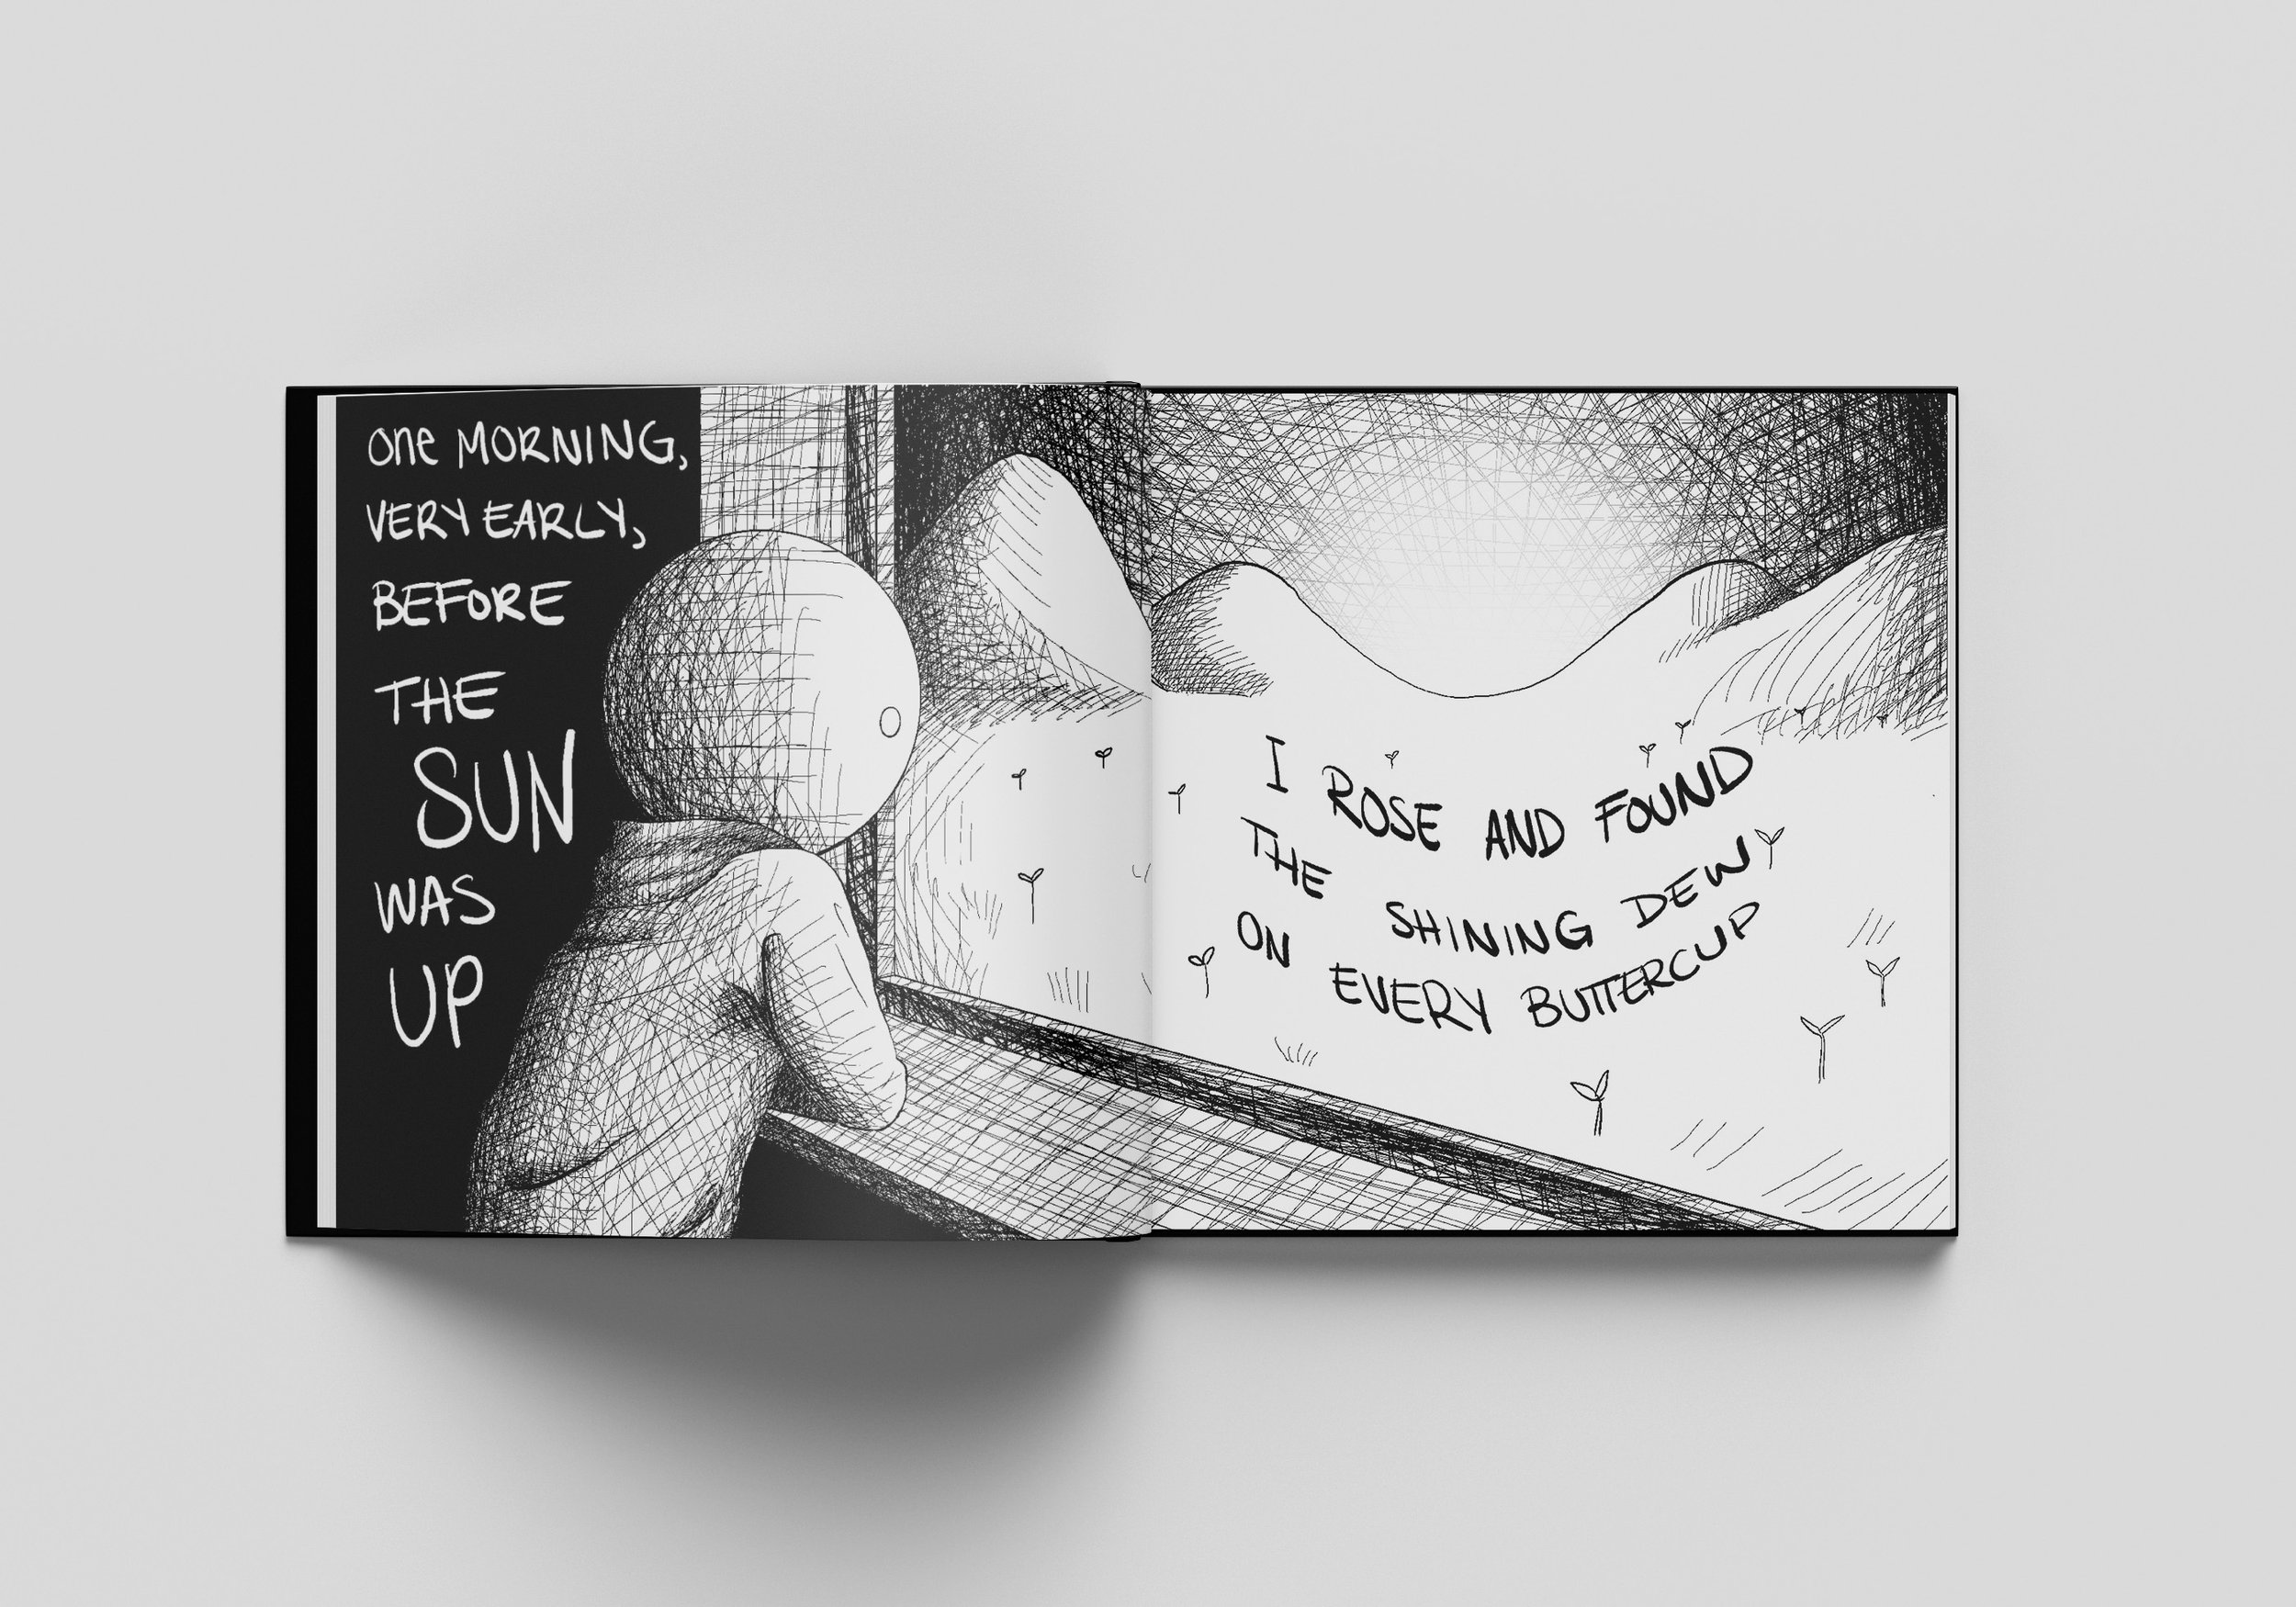 One MORNING,
VERY EARLY,
BEFORE
THE
SUN
WAS
UP
I ROSE AND FOUND
THE SHINING DEW
ON EVERY BUTTERCUP